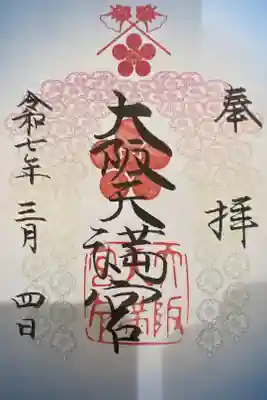 奉拝
大阪天満宮
令和七年三月四日